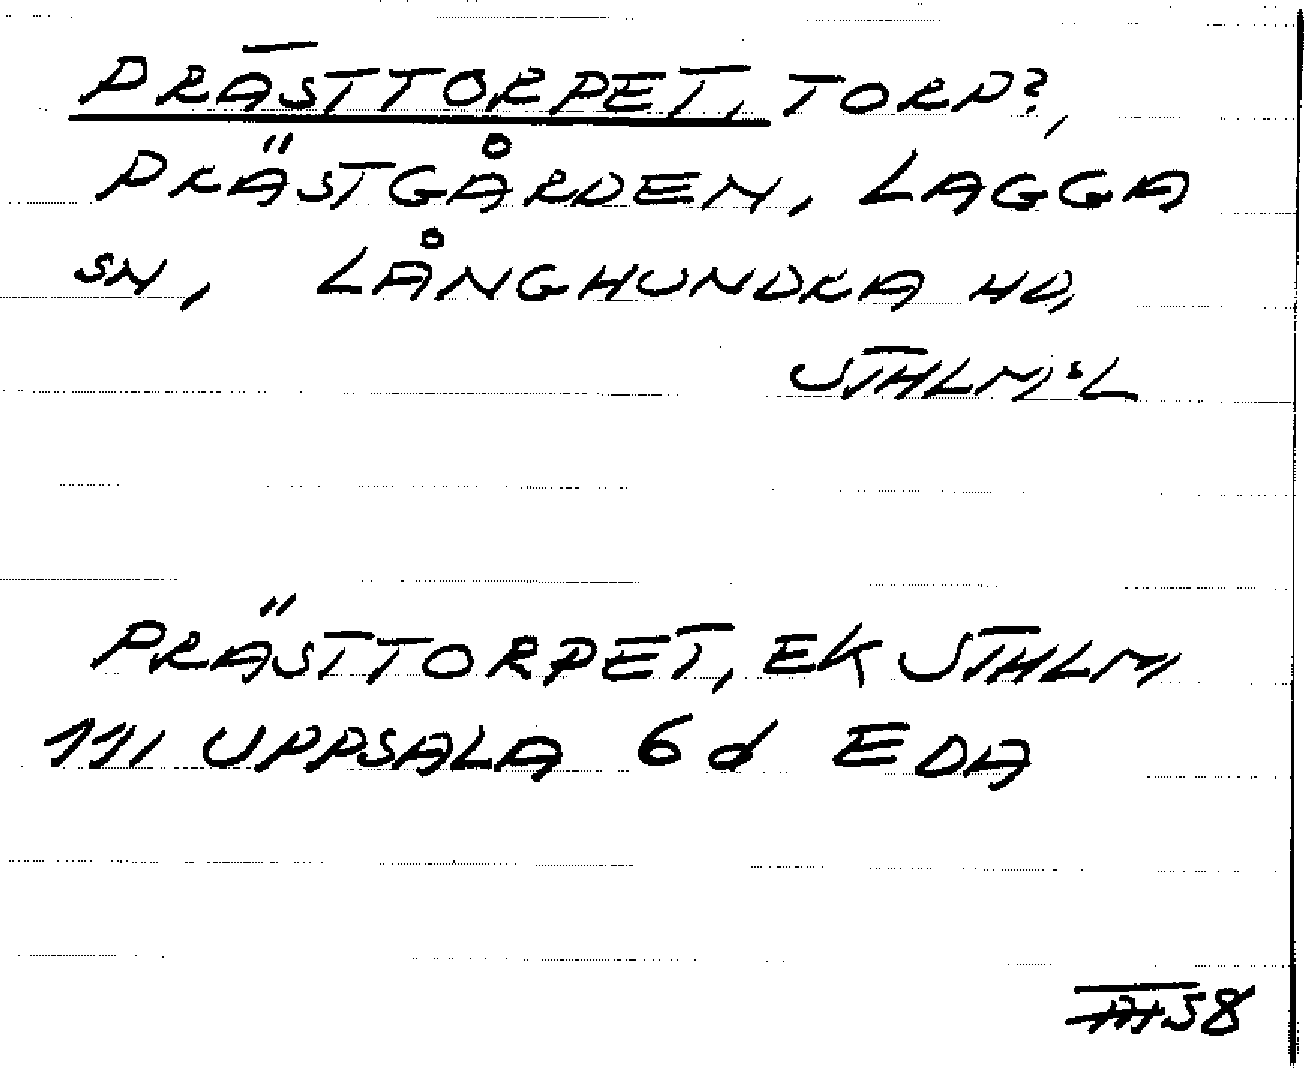 PRÄSTTORPET, TORP?,
PRÄSTGÅRDEN, LAGGA
SN, LÅNGHUNDRA HD,
STHLM:S L
PRÄSTTORPET, EK STHLM
111 UPPSALA 6 d EDA
58